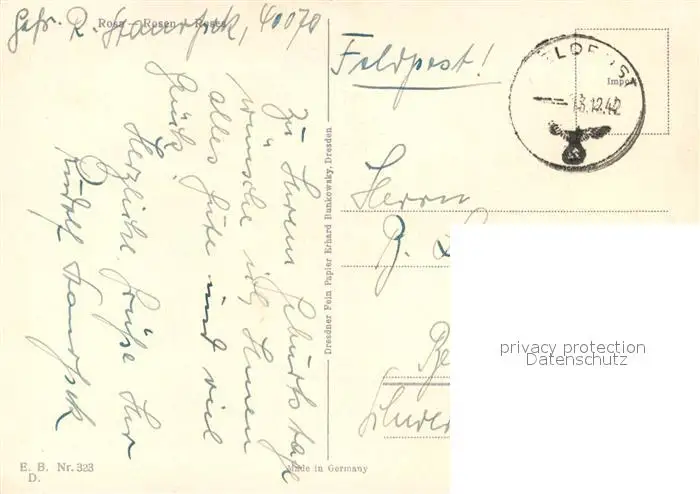 Rosa — Rosen — Roses
Gefr. R. 40070
Feldpost!
FELDPOST
13.12.42
Impo
Zu Ihrem Geburtstage
wünsche ich Ihnen
alles Gute und viel
Glück!
Herzliche Grüße Ihr
Rudolf
Dresdner Fein Papier Erhard Bunkowsky, Dresden
Herrn
E. B. Nr. 323
D.
Made in Germany
privacy protection
Datenschutz